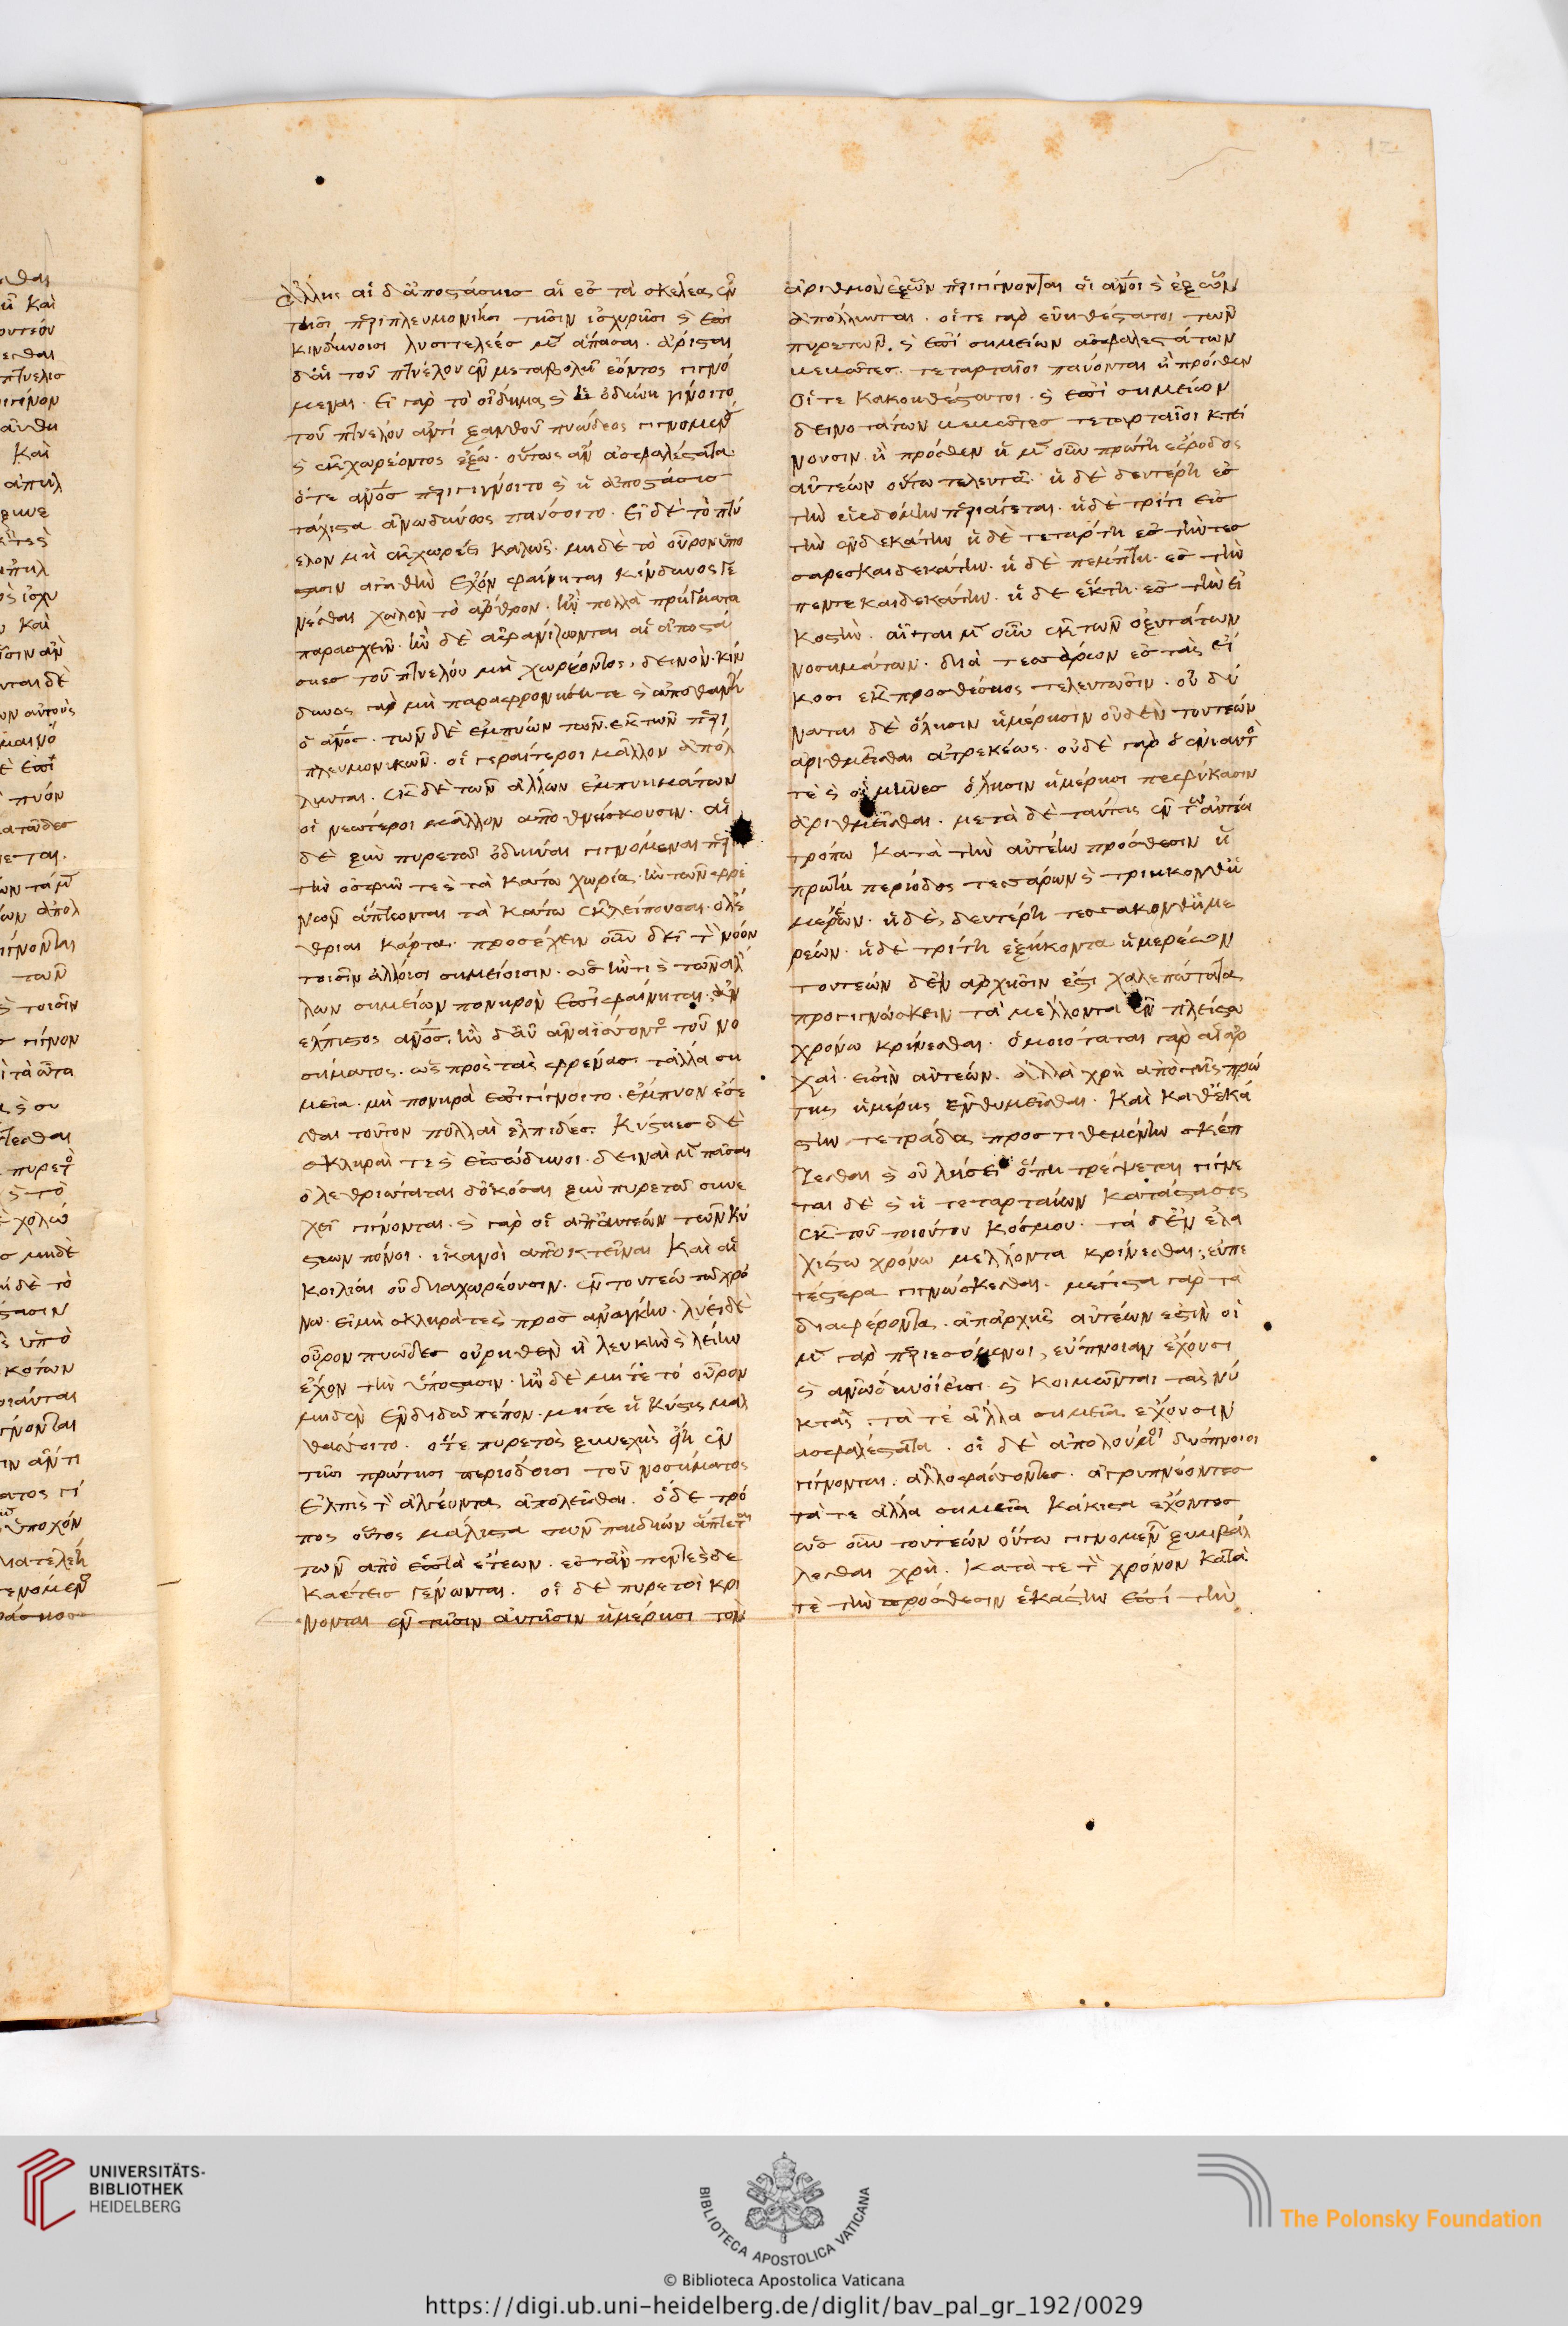 ἄλλης αἱ δ' ἀποστάσιες αἱ ἐς τὰ σκέλεα ἐν
τοῖσι περιπλευμονικοῖσι τῆσιν ἰσχυρῆσι καὶ ἐπι
κινδύνοισι λυσιτελέες μὲν ἅπασαι. ἄρισται
δὲ αἱ τοῦ πτυέλου ἐν μεταβολῇ ἐόντος γιγνό
μεναι. εἰ γὰρ τὸ οἴδημα καὶ ἡ ὀδύνη γίνοιτο
τοῦ πτυέλου ἀντὶ ξανθοῦ πυώδεος γιγνομένου
καὶ ἐκχωρέοντος ἔξω. οὕτως ἂν ἀσφαλέστατα
ὅτε ἄνθρωπος περιγίνοιτο καὶ ἡ ἀπόστασις
τάχιστα ἀνώδυνος παύσοιτο. εἰ δὲ τὸ πτύ
ελον μὴ ἐκχωρέει καλῶς. μηδὲ τὸ οὖρον ὑπό
στασιν ἀγαθὴν ἔχον φαίνηται κίνδυνος γε
νέσθαι χωλὸν τὸ ἄρθρον. ἢν πολλὰ πρήγματα
παρασχεῖν. ἢν δὲ ἀφανίζωνται αἱ ἀποστά
σιες τοῦ πτυέλου μὴ χωρέοντος, δεινὸν. κίν
δυνος γὰρ μὴ παραφρονήσῃ τε καὶ ἀποθανῇ
ὁ ἄνθρωπος. τῶν δὲ ἐμπύων τῶν ἐκ τῶν περι
πλευμονικῶν. οἱ γεραίτεροι μᾶλλον ἀπόλ
λυνται. ἐκ δὲ τῶν ἄλλων ἐμπυημάτων
οἱ νεώτεροι μᾶλλον ἀποθνήσκουσιν. αἱ
δὲ ξὺν πυρετῷ ὀδύναι γιγνόμεναι περὶ
τὴν ὀσφὺν τε καὶ τὰ κάτω χωρία. ἢν τῶν φρε
νῶν ἅπτωνται τὰ κάτω ἐκλείπουσαι. ὀλέ
θριαι κάρτα. προσέχειν οὖν δεῖ τὸν νόον
τοῖσιν ἄλλοισι σημείοισιν. ὡς ἤν τι καὶ τῶν ἄλ
λων σημείων πονηρὸν ἐπιφαίνηται. ἀν
έλπιστος ἄνθρωπος. ἢν δ' αὖ ἀναΐσσοντος τοῦ νο
σήματος. ὡς πρὸς τὰς φρένας. τἄλλα ση
μεῖα. μὴ πονηρὰ ἐπιγίγνοιτο. ἔμπυον ἔσε
σθαι τοῦτον πολλαὶ ἐλπίδες. Κύστιες δὲ
σκληραί τε καὶ ἐπώδυνοι. δειναὶ μὲν πᾶσαι
ὀλεθριώταται δὁκόσαι ξὺν πυρετῷ συνε
χεῖ γίνονται. καὶ γὰρ οἱ ἀπ' αὐτέων τῶν κύ
στεων πόνοι. ἱκανοὶ ἀποκτεῖναι καὶ αἱ
κοιλίαι οὐ διαχωρέουσιν. ἐν τουτέω τῷ χρό
νω. εἰ μὴ σκληρά τε καὶ προσ ἀνάγκην. λύει δὲ
οὖρον πυῶδες οὐρηθὲν ἢ λευκὴν καὶ λείην
ἔχον τὴν ὑπόστασιν. ἢν δὲ μήτε τὸ οὖρον
μηδὲν ἐνδιδῷ πέπον. μήτε ἡ κύστις μαλ
θάσσοιτο. ὅτε πυρετὸς ξυνεχὴς ᾖ ἐν
τῇσι πρώτῃσι περιόδοισι τοῦ νοσήματος
ἐλπὶς τὸν ἀλγέοντα ἀπολέσθαι. ὁ δὲ τρό
πος οὗτος μάλιστα τῶν παιδίων ἅπτεται
τῶν ἀπὸ ἑπτὰ ἐτέων. ἐς τ' ἂν πεντεκαίδε
καέτεις γένωνται. οἱ δὲ πυρετοὶ κρί
νονται ἐν τῇσιν αὐτῇσιν ἡμέρῃσι τὸν
ἀριθμὸν ἐξ ὧν περιγίνονται οἱ ἄνθρωποι καὶ ἐξ ὧν
ἀπόλλυνται. οἵ τε γὰρ εὐηθέστατοι τῶν
πυρετῶν. καὶ ἐπὶ σημείων ἀσφαλεστάτων
γεγαῶτες. τεταρταῖοι παύονται ἢ πρόσθεν
οἵ τε κακοηθέστατοι. καὶ ἐπὶ σημείων
δεινοτάτων γεγαῶτες τεταρταῖοι κτεί
νουσιν. ἢ πρόσθεν ἡ μὲν οὖν πρώτη ἔφοδος
αὐτέων οὕτω τελευτᾷ. ἡ δὲ δευτέρη ἐς
τὴν ἑβδόμην περιάγεται. ἡ δὲ τρίτη εἰς
τὴν ἑνδεκάτην ἡ δὲ τετάρτη ἐς τὴν τεσ
σαρεσκαιδεκάτην. ἡ δὲ πέμπτη. ἐς τὴν
πεντεκαιδεκάτην. ἡ δὲ ἕκτη. ἐς τὴν εἰ
κοστὴν. αὗται μὲν οὖν ἐκ τῶν ὀξυτάτων
νοσημάτων. διὰ τεσσάρων ἐς τὰς εἴ
κοσι ἐκ προσθέσιος τελευτῶσιν. οὐ δύ
ναται δὲ ὅλῃσιν ἡμέρῃσιν οὐδὲν τουτέων
ἀριθμεῖσθαι ἀτρεκέως. οὐδὲ γὰρ ὁ ἐνιαυτός
τε καὶ οἱ μῆνες ὅλῃσιν ἡμέρῃσι πεφύκασιν
ἀριθμεῖσθαι. μετὰ δὲ ταύτας ἐν τῷ αὐτέω
τρόπω κατὰ τὴν αὐτέην πρόσθεσιν ἡ
πρώτη περίοδος τεσσάρων καὶ τριήκονθ' ἡ
μερέων. ἡ δὲ, δευτέρη τεσσακονθ' ἡμε
ρέων. ἡ δὲ τρίτη ἑξήκοντα ἡμερέων
τουτέων δ' ἐν ἀρχῇσιν ἐστι χαλεπώτατα
προγιγνώσκειν τὰ μέλλοντα ἐν πλείστω
χρόνω κρίνεσθαι. ὁμοιόταται γὰρ αἱ ἀρ
χαί εἰσιν αὐτέων. ἀλλὰ χρὴ ἀπὸ τῆς πρώ
της ἡμέρης ἐνθυμεῖσθαι. καὶ καθ' ἑκά
στην τετράδα προστιθεμένην σκέπ
τεσθαι καὶ οὐ λήσει ὅπη τρέψεται γίνε
ται δὲ καὶ ἡ τεταρταίων κατάστασις
ἐκ τοῦ τοιούτου κόσμου. τὰ δ' ἐν ἐλα
χίστω χρόνω μέλλοντα κρίνεσθαι, εὐπε
τέστερα γιγνώσκεσθαι. μέγιστα γὰρ τὰ
διαφέροντα. ἀπ' ἀρχῆς αὐτέων ἐστὶν οἱ
μὲν γὰρ περιεσόμενοι, εὔπνοιαν ἔχουσι
καὶ ἀνώδυνοί εἰσι. καὶ κοιμῶνται τὰς νύ
κτας. τά τε ἄλλα σημεῖα ἔχουσιν
ἀσφαλέστατα. οἱ δὲ ἀπολούμενοι δύσπνοοι
γίγνονται. ἀλλοφάσσοντες. ἀγρυπνέοντες
τά τε ἄλλα σημεῖα κάκιστα ἔχοντες
ὡς οὖν τουτέων οὕτω γιγνομένων ξυμβάλ
λεσθαι χρὴ. κατά τε τὸν χρόνον κατά
τε τὴν πρόσθεσιν ἑκάστην ἐπὶ τὴν
UNIVERSITÄTS-
BIBLIOTHEK
HEIDELBERG
BIBLIOTECA APOSTOLICA VATICANA
The Polonsky Foundation
© Biblioteca Apostolica Vaticana
https://digi.ub.uni-heidelberg.de/diglit/bav_pal_gr_192/0029